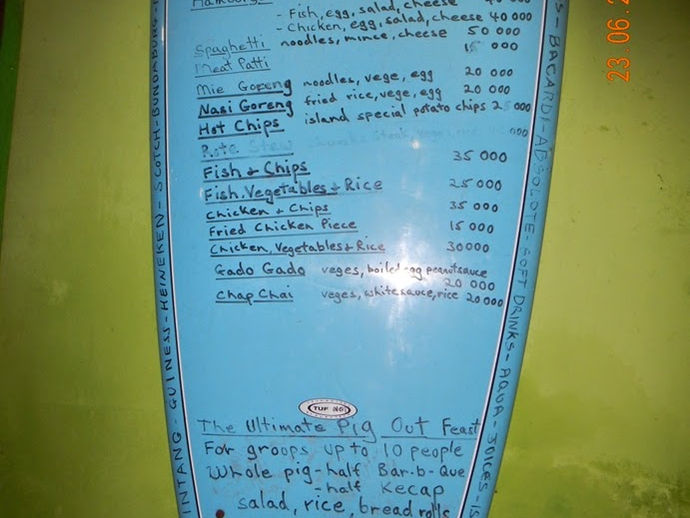 Hamburger
- Fish, egg, salad, cheese 40 000
- Chicken, egg, salad, cheese 40 000
Spaghetti noodles, mince, cheese 50 000
Meat Patti 15 000
Mie Goreng noodles, vege, egg 20 000
Nasi Goreng fried rice, vege, egg 20 000
Hot Chips island special potato chips 25 000
Rote Stew Steak, veges, rice 000
Fish & Chips 35 000
Fish, Vegetables & Rice 25 000
Chicken & Chips 35 000
Fried Chicken Piece 15 000
Chicken, Vegetables & Rice 30000
Gado Gado veges, boiled egg peanut sauce
20 000
Chap Chai veges, white sauce, rice 20 000
TUF
The Ultimate Pig Out Feast
For groops up to 10 people
Whole pig - half Bar-b-Que
- half Kecap
salad, rice, bread rolls
INTANG - GUINESS - HEINEKEN - SCOTCH - BUNDABURG -
- BACARDI - ABSOLOTE - SOFT DRINKS - AQUA - JOICES - IS
23.06.2